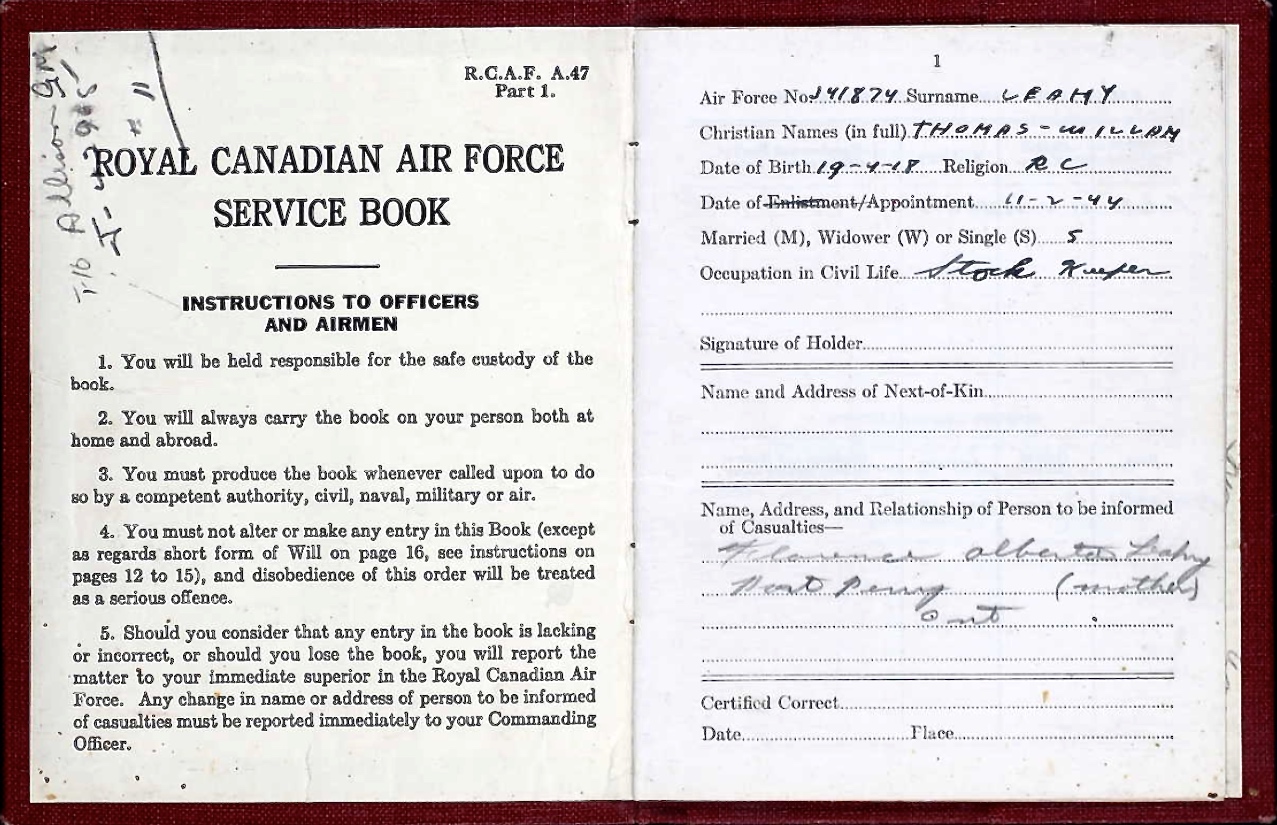 T/6 Allison GM
J-
# 11
R.C.A.F. A.47
Part 1.
ROYAL CANADIAN AIR FORCE
SERVICE BOOK
INSTRUCTIONS TO OFFICERS
AND AIRMEN
1. You will be held responsible for the safe custody of the
book.
2. You will always carry the book on your person both at
home and abroad.
3. You must produce the book whenever called upon to do
so by a competent authority, civil, naval, military or air.
4. You must not alter or make any entry in this Book (except
as regards short form of Will on page 16, see instructions on
pages 12 to 15), and disobedience of this order will be treated
as a serious offence.
5. Should you consider that any entry in the book is lacking
or incorrect, or should you lose the book, you will report the
matter to your immediate superior in the Royal Canadian Air
Force. Any change in name or address of person to be informed
of casualties must be reported immediately to your Commanding
Officer.
1
Air Force No. J41874 Surname LEAHY
Christian Names (in full) THOMAS-WILLAM
Date of Birth 19-4-18 Religion R C
Date of Enlistment/Appointment 11-2-44
Married (M), Widower (W) or Single (S) S
Occupation in Civil Life Stock Keeper
Signature of Holder
Name and Address of Next-of-Kin
Name, Address, and Relationship of Person to be informed
of Casualties—
Florence Alberta Leahy
Port Perry (mother)
Ont
Certified Correct
Date Place